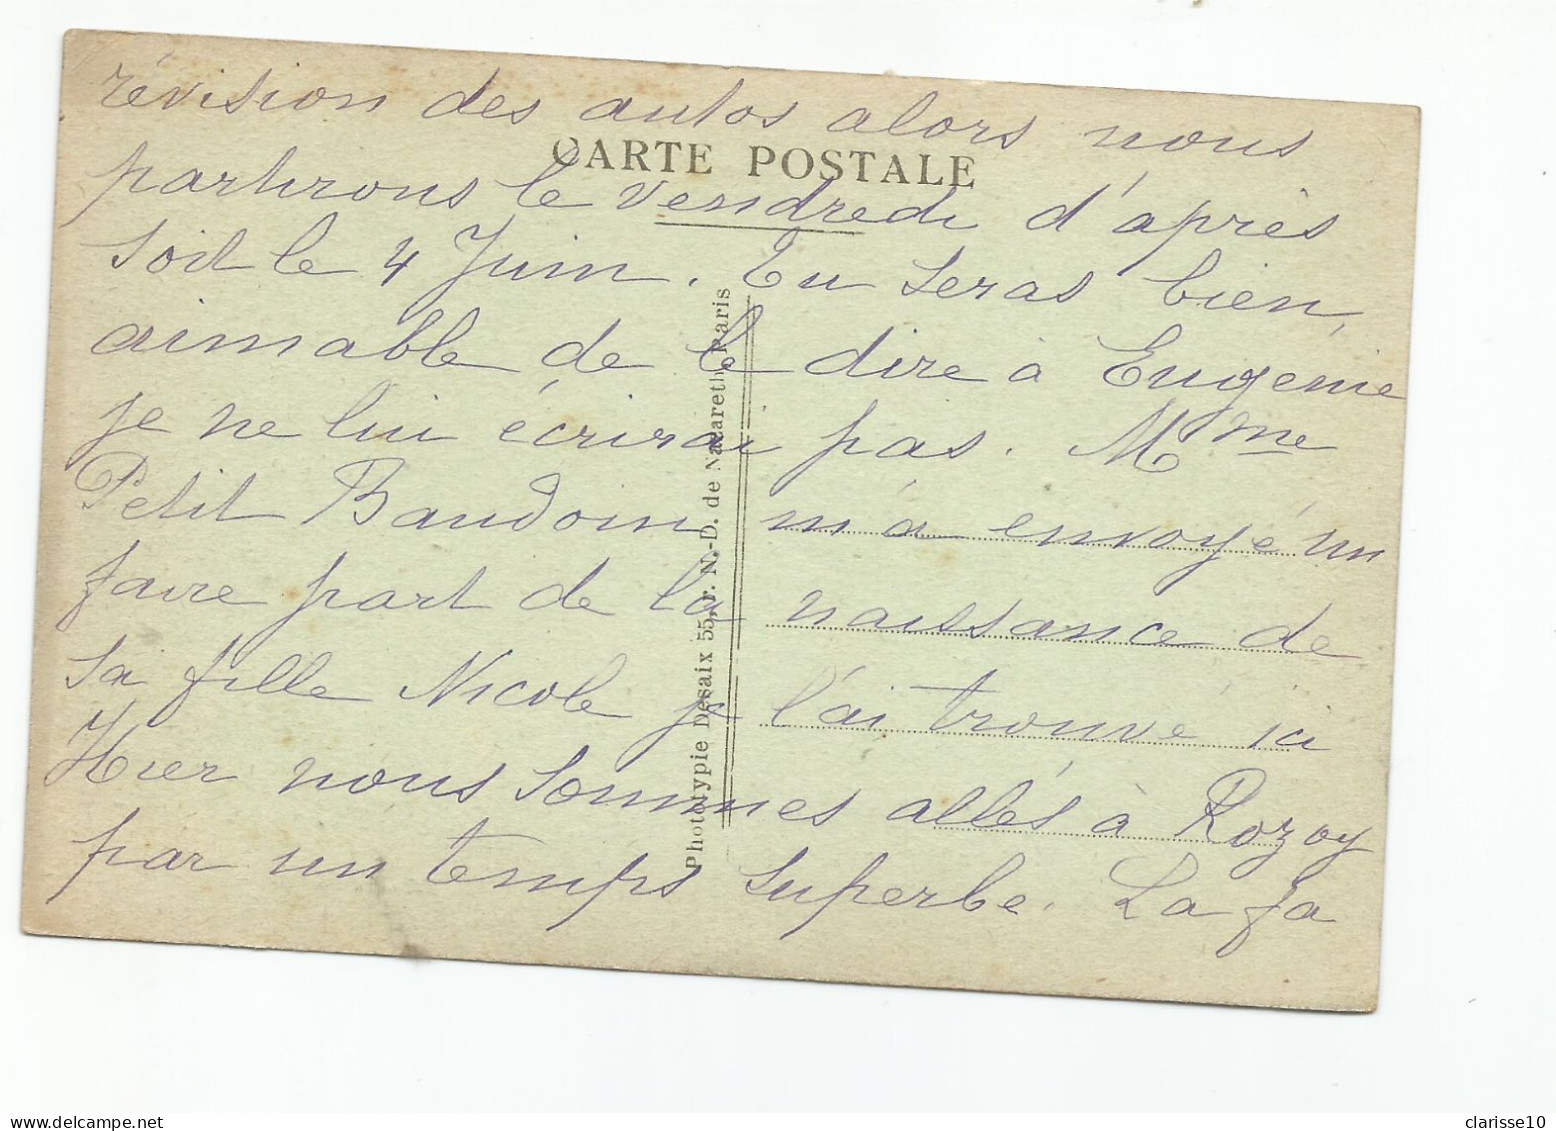 révision des autos alors nous
CARTE POSTALE
partirons le vendredi d'après
soit le 4 Juin. Tu seras bien
aimable de le dire à Eugenie
je ne lui écrirai pas. Mme
Petit Baudoin m'a envoyé un
faire part de la naissance de
sa fille Nicole je l'ai trouvé ici
Hier nous sommes allés à Rozoy
par un temps superbe. La fa
Phototypie Desaix 55, r. N.-D. de Nazareth, Paris
clarisse10